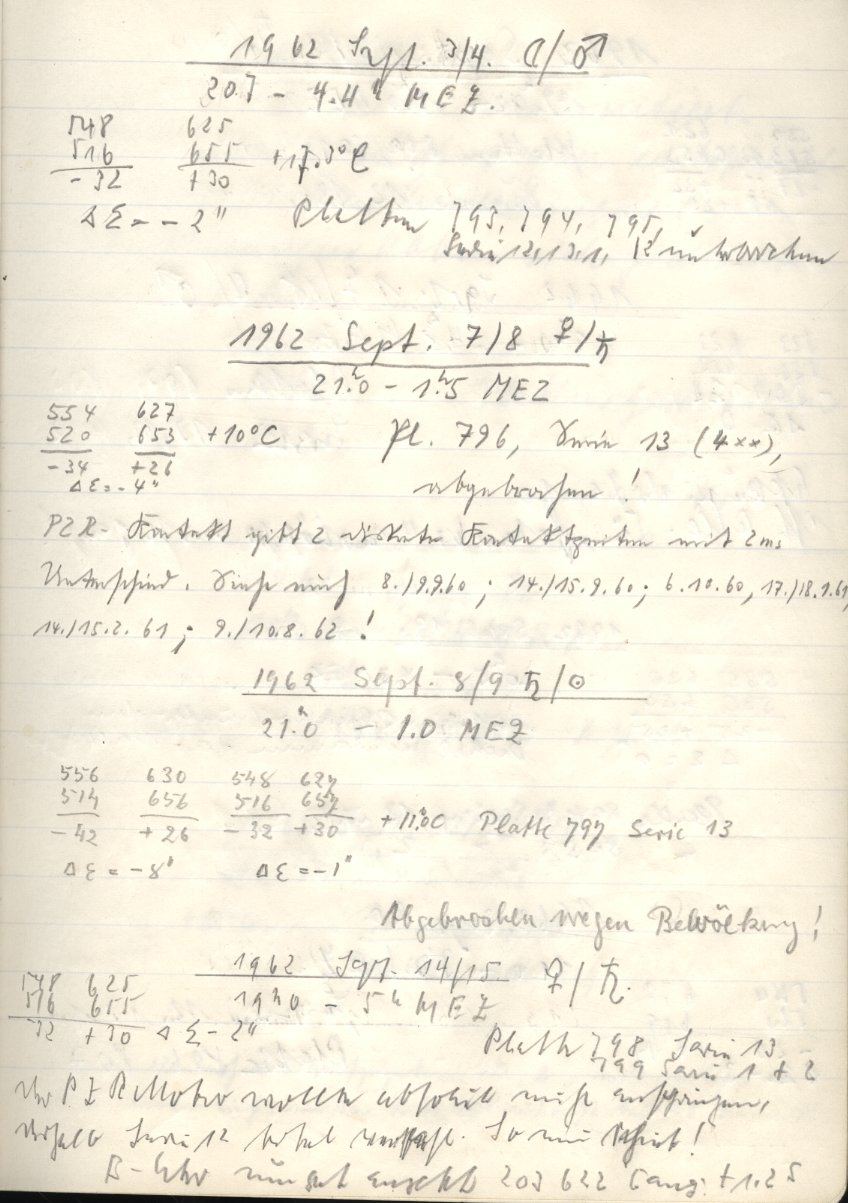 1962 Sept. 3/4. ☾/♂
20.7 – 4.4ʰ MEZ.
548 625
516 655 +17.3°C
-32 +30
ΔΣ = – 2" Platten 793, 794, 795,
Serie 12, 13, 1, 12 unterbrochen
1962 Sept. 7/8 ♀/♄
21.ʰ0 – 1.ʰ5 MEZ
554 627
520 653 +10°C Pl. 796, Serie 13 (4××),
-34 +26
ΔΣ = -4" abgebrochen!
PZR-Kontakt gibt 2 diskrete Kontaktzeiten mit 2ms
Unterschied. Siehe auch 8./9.9.60; 14./15.9.60; 6.10.60, 17./18.1.61,
14./15.2.61; 9./10.8.62!
1962 Sept. 8/9 ♄/☉
21.ʰ0 – 1.0 MEZ
556 630 548 627
514 656 516 657
-42 +26 -32 +30 +11.0C Platte 797 Serie 13
ΔΣ = -8" ΔΣ = -1"
Abgebrochen wegen Bewölkung!
1962 Sept. 14/15 ♀/♄.
548 625
516 655 19ʰ40 – 5ʰ MEZ
-32 +30 ΔΣ – 2"
Platte 798 Serie 13
799 Serie 1 + 2
Der PZR Motor wollte absolut nicht anspringen,
deshalb Serie 12 total verpaßt. So ein Mist!
B-Uhr 203 622 Gang: +1.25